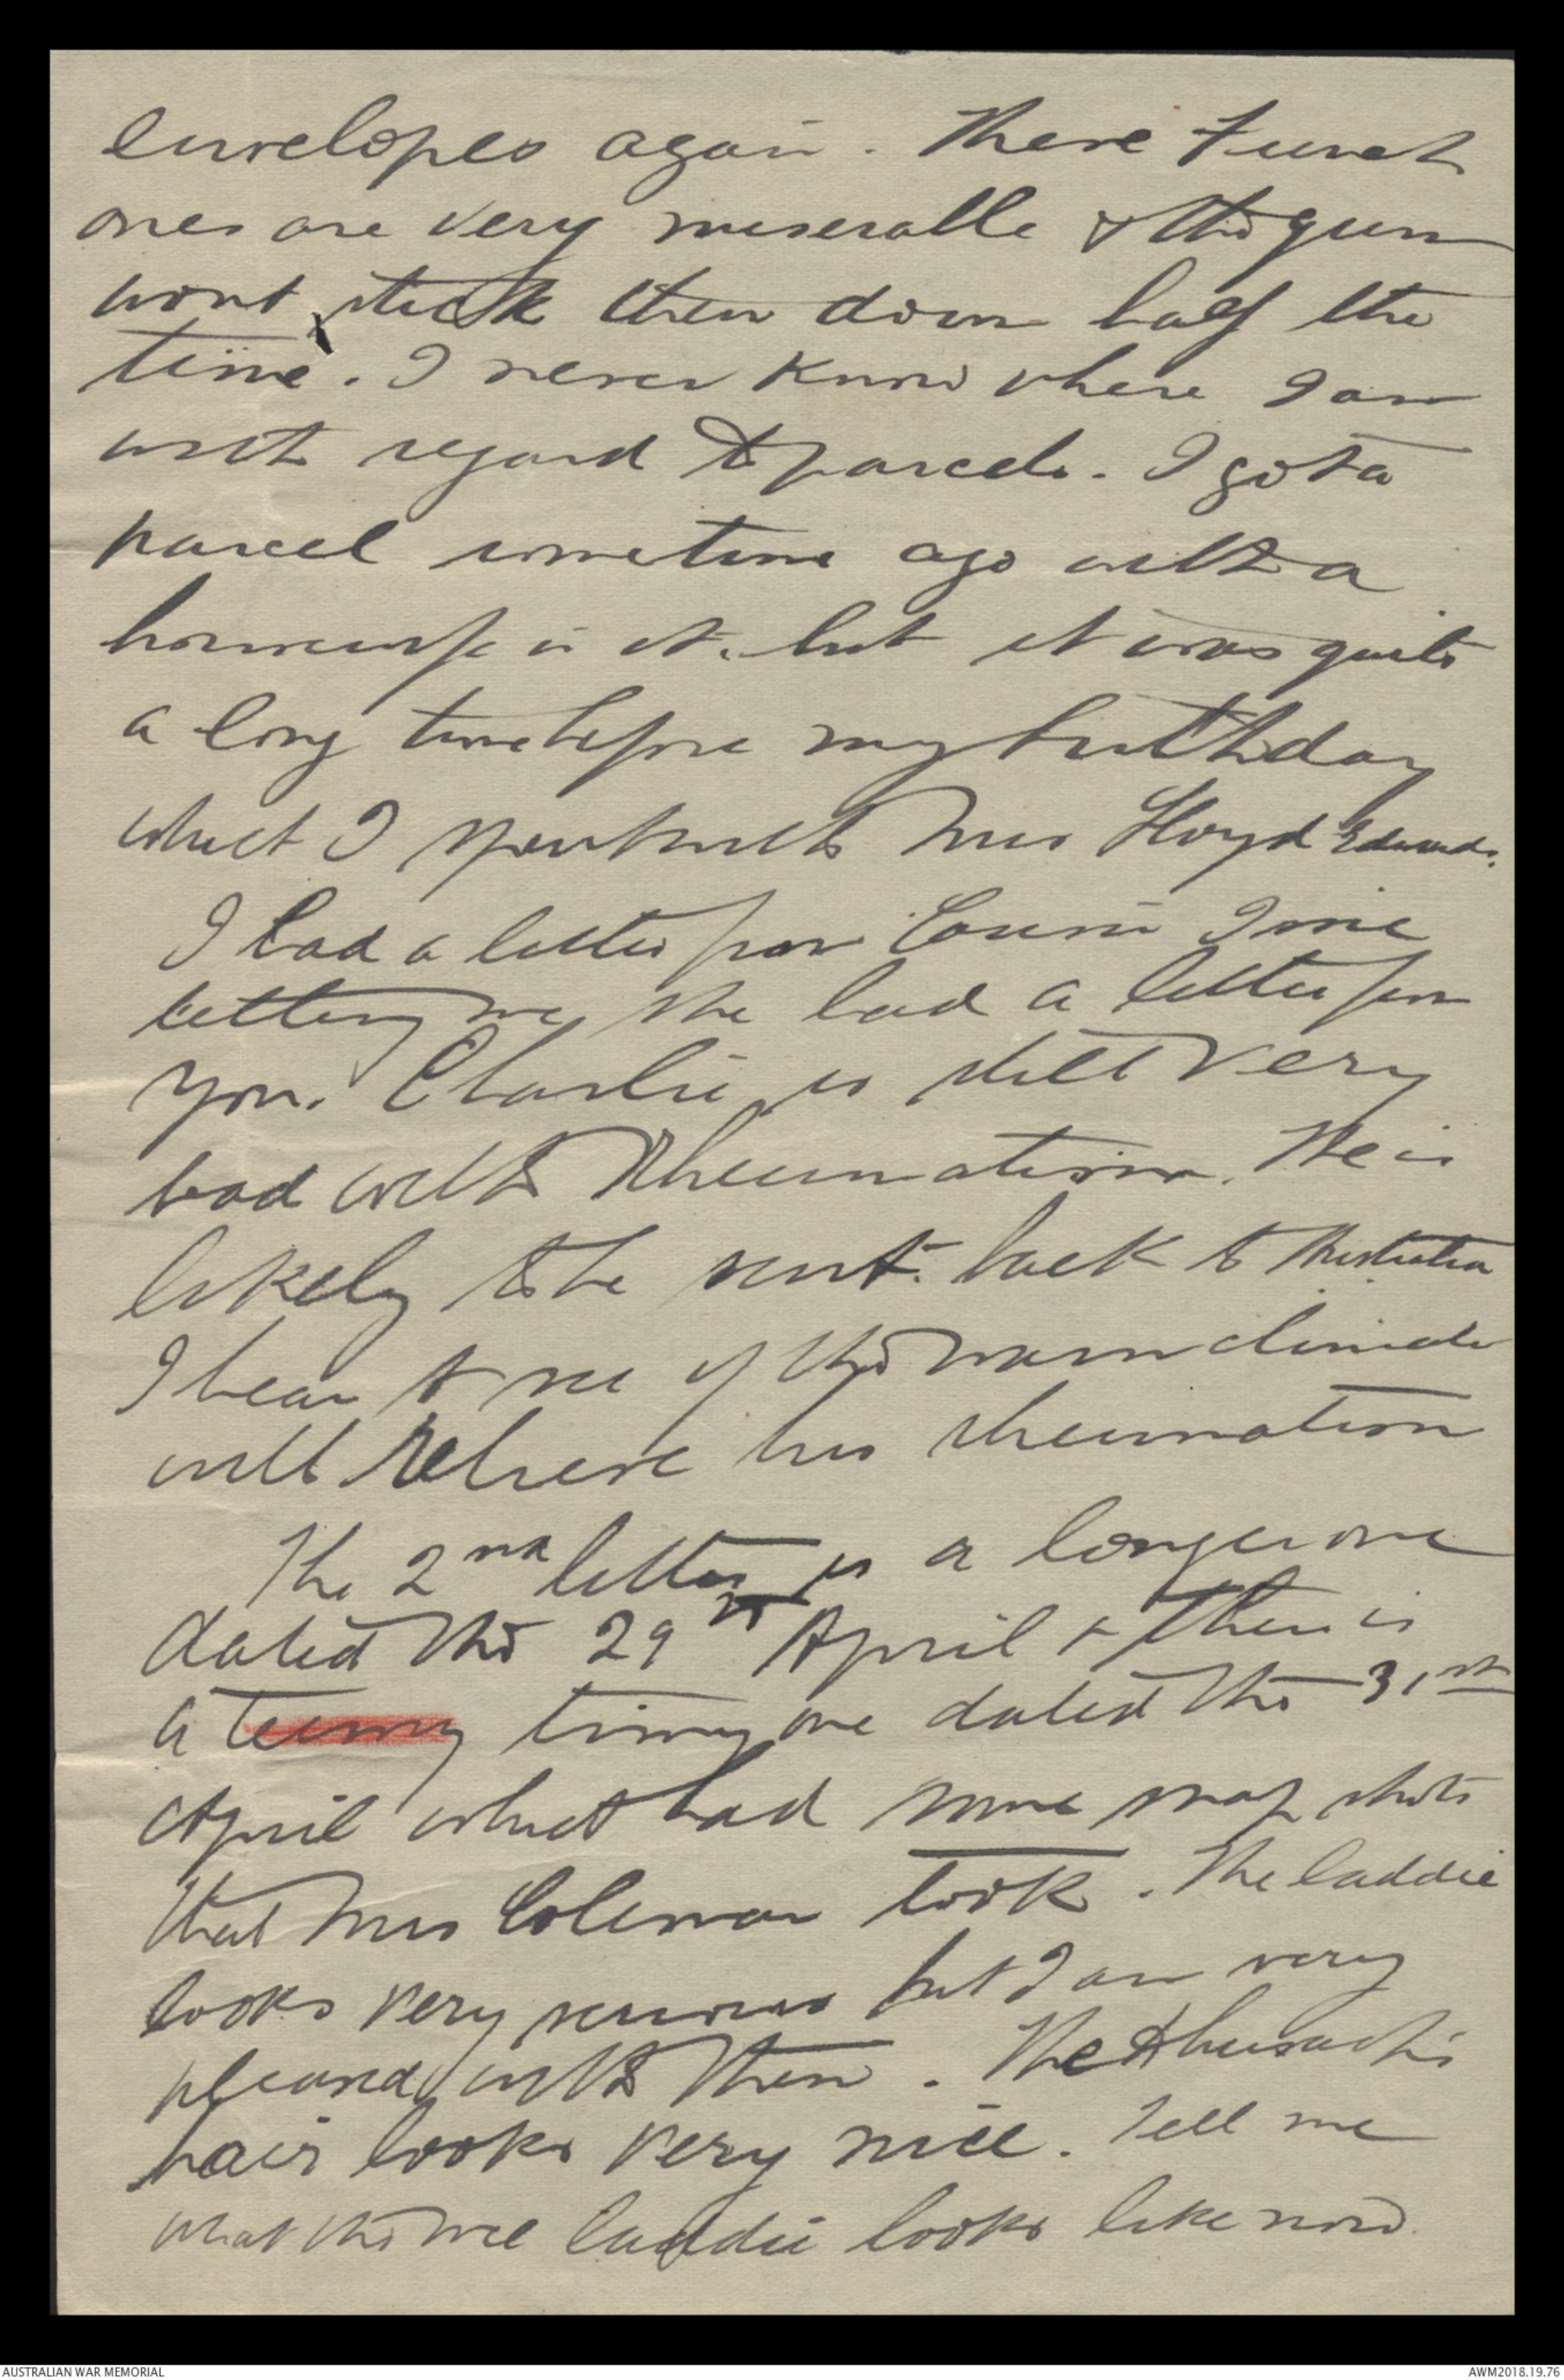 envelopes again. These French
ones are very miserable & the gum
wont stick them down half the
time. I never know where I am
with regard to parcels. I got a
parcel sometime ago with a
housewife in it, but it was quite
a long time before my birthday
which I spent with Mrs Lloyd Edwards.
I had a letter from Cousin Imie
telling me she had a letter from
you. Charlie is still very
bad with Rheumatism. He is
likely to be sent back to Australia
I hear to see if the warm climate
will relieve his rheumatism
The 2nd letter is a longer one
dated the 29th April & then is
a teeny tiny one dated the 31st
April which had some snap shots
that Mrs Coleman took. The laddie
looks very serious but I am very
pleased with them. The
hair looks very nice. Tell me
what the wee laddie looks like now.
AUSTRALIAN WAR MEMORIAL
AWM2018.19.76